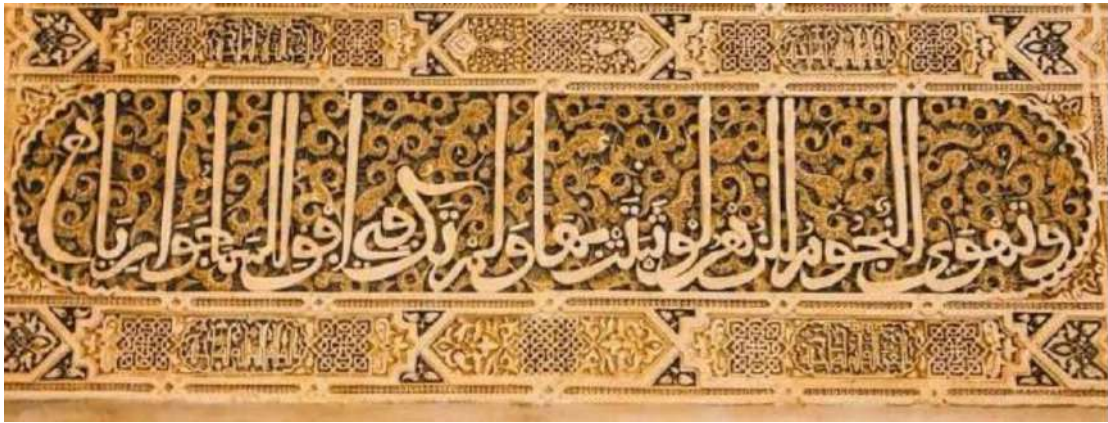 وتهوى النجوم الزهر لو ثبتت بها ولم تك في أفق السما جواريا